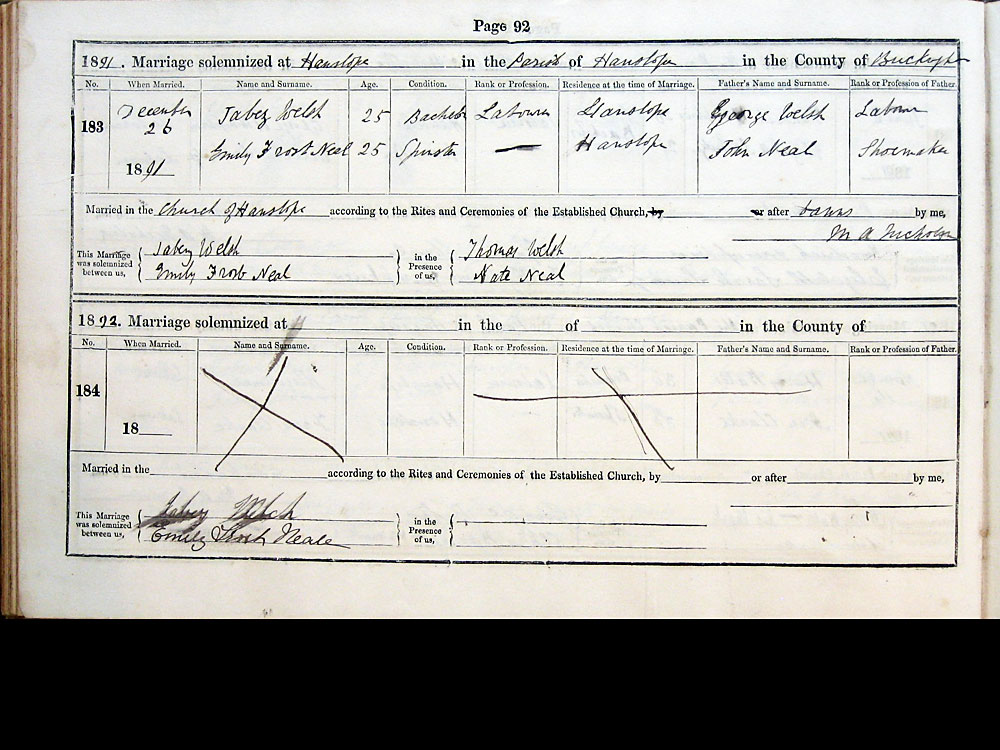 Page 92
1891. Marriage solemnized at Hanslope in the Parish of Hanslope in the County of Buckingh
No. When Married. Name and Surname. Age. Condition. Rank or Profession. Residence at the time of Marriage. Father's Name and Surname. Rank or Profession of Father.
183 December 26 1891 Jabez Welsh 25 Bachelor Labourer Hanslope George Welsh Labourer
Emily Frost Neal 25 Spinster — Hanslope John Neal Shoemaker
Married in the Church of Hanslope according to the Rites and Ceremonies of the Established Church, by or after banns by me,
M A Nicholson
This Marriage was solemnized between us, Jabez Welsh in the Presence of us, Thomas Welsh
Emily Frost Neal Kate Neal
1892. Marriage solemnized at in the of in the County of
No. When Married. Name and Surname. Age. Condition. Rank or Profession. Residence at the time of Marriage. Father's Name and Surname. Rank or Profession of Father.
184
18
Married in the according to the Rites and Ceremonies of the Established Church, by or after by me,
This Marriage was solemnized between us, Jabez Welch in the Presence of us,
Emily Frost Neale